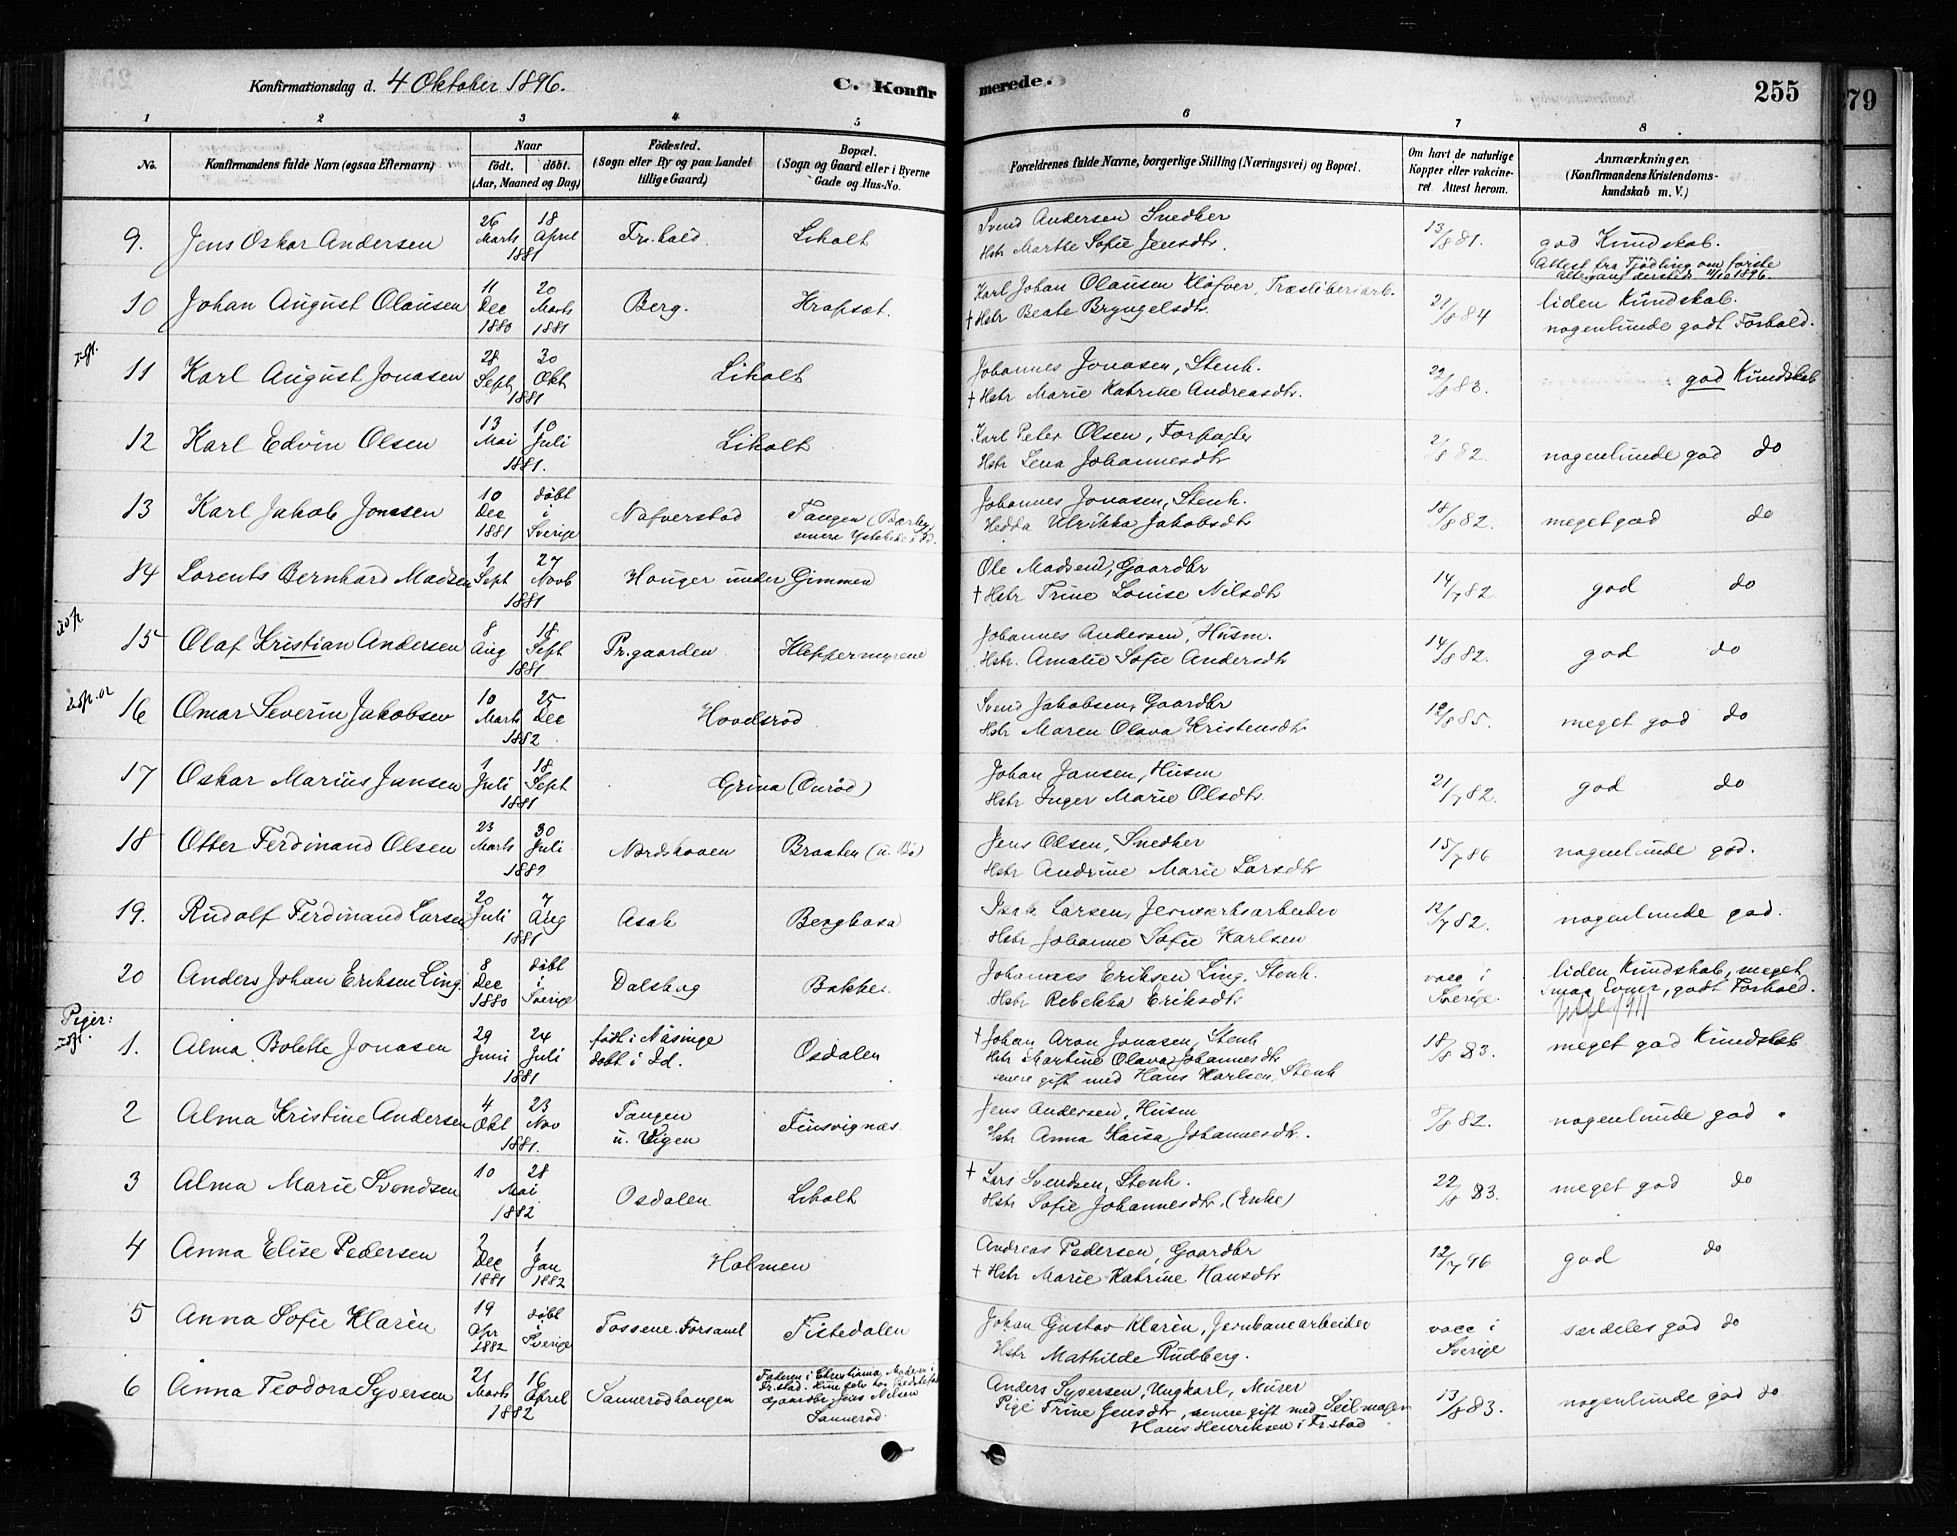 Konfirmationsdag d. 4 Oktober 1896.
C. Konfirmerede.
255
79
1 2 3 4 5 6 7 8
No.
Konfirmandens fulde Navn (ogsaa Efternavn)
Naar
født. døbt.
(Aar, Maaned og Dag)
Fødested.
(Sogn eller By og paa Landet
tillige Gaard)
Bopæl.
(Sogn og Gaard eller i Byerne
Gade og Hus-No.
Forældrenes fulde Navne, borgerlige Stilling (Næringsvei) og Bopæl.
Om havt de naturlige
Kopper eller vakcine-
ret. Attest herom.
Anmærkninger.
(Konfirmandens Kristendoms-
kundskab m. V.)
9. Jens Oskar Andersen 26 Marts 18 April 1881 Fr.hald. Liholt
Svend Andersen Snedker
Hstr Marthe Sofie Jensdtr. 13/8 81. god Kundskab.
Attest fra Tjødling om første
altergang dersteds 11/10 1896
10 Johan August Olausen 11 Dec 1880 20 Marts 1881 Berg. Krapsæt.
Karl Johan Olausen Kløfver, Træsliberiarb.
† Hstr Beate Bryngelsdtr. 21/8 84 liden Kundskab.
nogenlunde godt Forhold.
11 Karl August Jonasen 28 Sept 30 Okt 1881 Liholt
Johannes Jonasen, Stenh.
† Hstr Marie Katrine Andreasdtr. 29/8 83. god Kundskab
12 Karl Edvin Olsen 13 Mai 10 Juli 1881. Liholt
Karl Peter Olsen, Forpagter
Hstr Lena Johannesdtr 2/8 82. nogenlunde god do
13 Karl Jakob Jonasen 10 Dec 1881 døbt i Sverige Nafverstad Tangen (Bærby)
Johannes Jonasen, Stenh.
Hedda Ulrikka Jakobsdtr 18/8 82. meget god do
14 Lorents Bernhard Madsen 1 Sept 27 Novb 1881 Houger under Gimmen
Ole Madsen, Gaardbr
† Hstr Trine Louise Nilsdtr 14/7 82. god do
15 Olaf Kristian Andersen 8 Aug 18 Sept 1881 Pr.gaarden Kleppermyrene
Johannes Andersen, Husm.
Hstr. Amalie Sofie Andersdtr 14/8 82. god do
16 Omar Severin Jakobsen 10 Marts 25 Dec 1882 Hovdsrød
Svend Jakobsen, Gaardbr
Hstr Maren Olava Kristensdtr 19/8 85. meget god do
17 Oskar Marius Jansen 1 Juli 18 Sept 1881 Grina (Onrød)
Johan Jansen, Husm
Hstr Inger Marie Olsdtr. 21/7 82. god do
18 Otter Ferdinand Olsen 23 Marts 30 Juli 1882 Nordskoven Braaten (u. Bø)
Jens Olsen, Snedker
Hstr Andrine Marie Larsdtr 15/7 86 nogenlunde god.
19. Rudolf Ferdinand Larsen 20 Juli 7 Aug 1881 Asak Bergkasa
Isak Larsen, Jernværksarbeider
Hstr Johanne Sofie Karlsen 12/7 82. nogenlunde god.
20 Anders Johan Eriksen Ling. 8 Dec 1880 døbt i Sverige Dalskog Bakke.
Johannes Eriksen Ling, Stenh.
Hstr Rebekka Eriksdtr vacc i Sverige. liden Kundskab, meget
smaa Evner, godt Forhold.
Piger:
1. Alma Bolette Jonasen 29 Juni 24 Juli 1881 født i Näsinge
døbt i Id. Osdalen
† Johan Aron Jonasen, Stenh
Hstr Martine Olava Johannesdtr
senere gift med Hans Karlsen, Stenh 18/8 83. meget god Kundskab
2 Alma Kristine Andersen 4 Okt 23 Nov 1881. Tangen
u. Vigen Tinsvignæs.
Jens Andersen, Husm
Hstr Anna Kaisa Johannesdtr. 8/8 82. nogenlunde god.
3 Alma Marie Svendsen 10 28 Mai 1882 Osdalen Liholt
† Lars Svendsen, Stenh.
Hstr Sofie Johannesdtr. (Enke) 22/8 83. meget god do
4 Anna Elise Pedersen 2 Dec 1881 1 Jan 1882 Holmen
Andreas Pedersen, Gaardbr
† Hstr Marie Katrine Hansdtr 12/7 96 god do
5 Anna Sofie Klarèn 19 Apr 1882 døbt i Sverige Tossene Forsaml Tistedalen
Johan Gustav Klarèn, Jernbanearbeider
Hstr Mathilde Rudberg. vacc i Sverige særdeles god do
6 Anna Teodora Syversen 21 Marts 16 April 1882 Sannerødhaugen Faderen i Christiania, Moderen i
Fr.stad.
Gaardbr Jens Nilsen
Sannerød
Anders Syversen, Ungkarl, Murer
Pige Trine Jensdtr, senere gift med Seilmager
Hans Henriksen i Fr.stad 13/8 83. nogenlunde god do